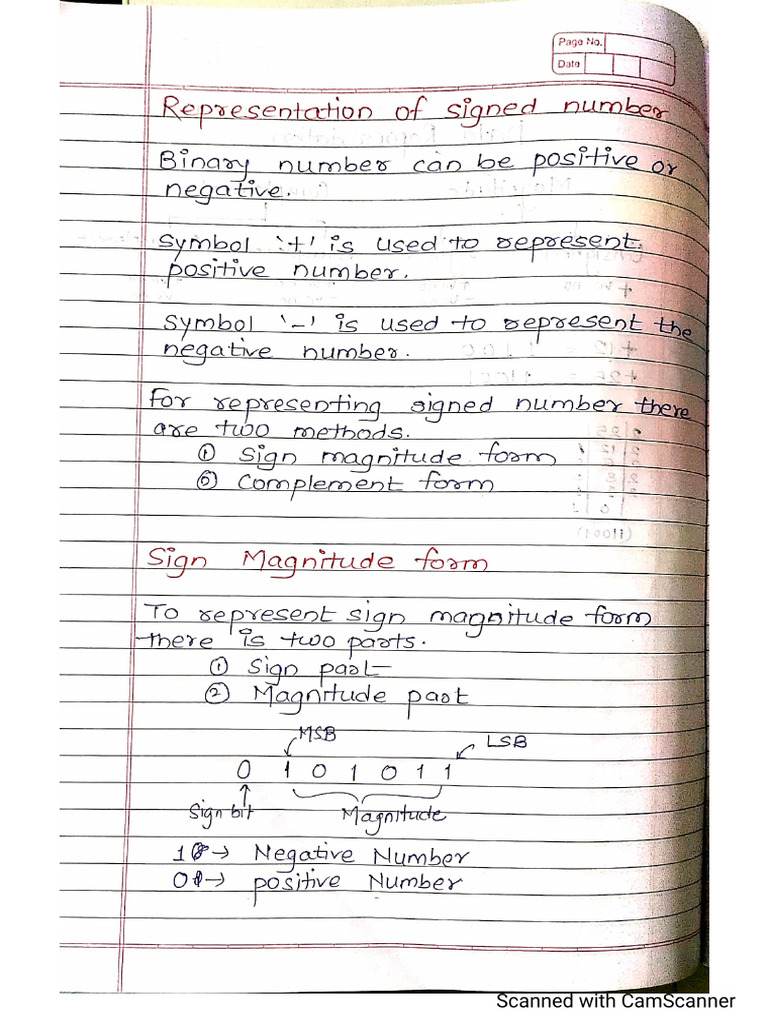 Page No.
Date
Representation of signed number
Binary number can be positive or
negative.
Symbol '+' is used to represent
positive number.
Symbol '-' is used to represent the
negative number.
For representing signed number there
are two methods.
① Sign magnitude form
② Complement form
Sign Magnitude form
To represent sign magnitude form
there is two parts.
① Sign part
② Magnitude part
MSB LSB
0 1 0 1 0 1 1
Sign bit Magnitude
1 → Negative Number
0 → positive Number
Scanned with CamScanner